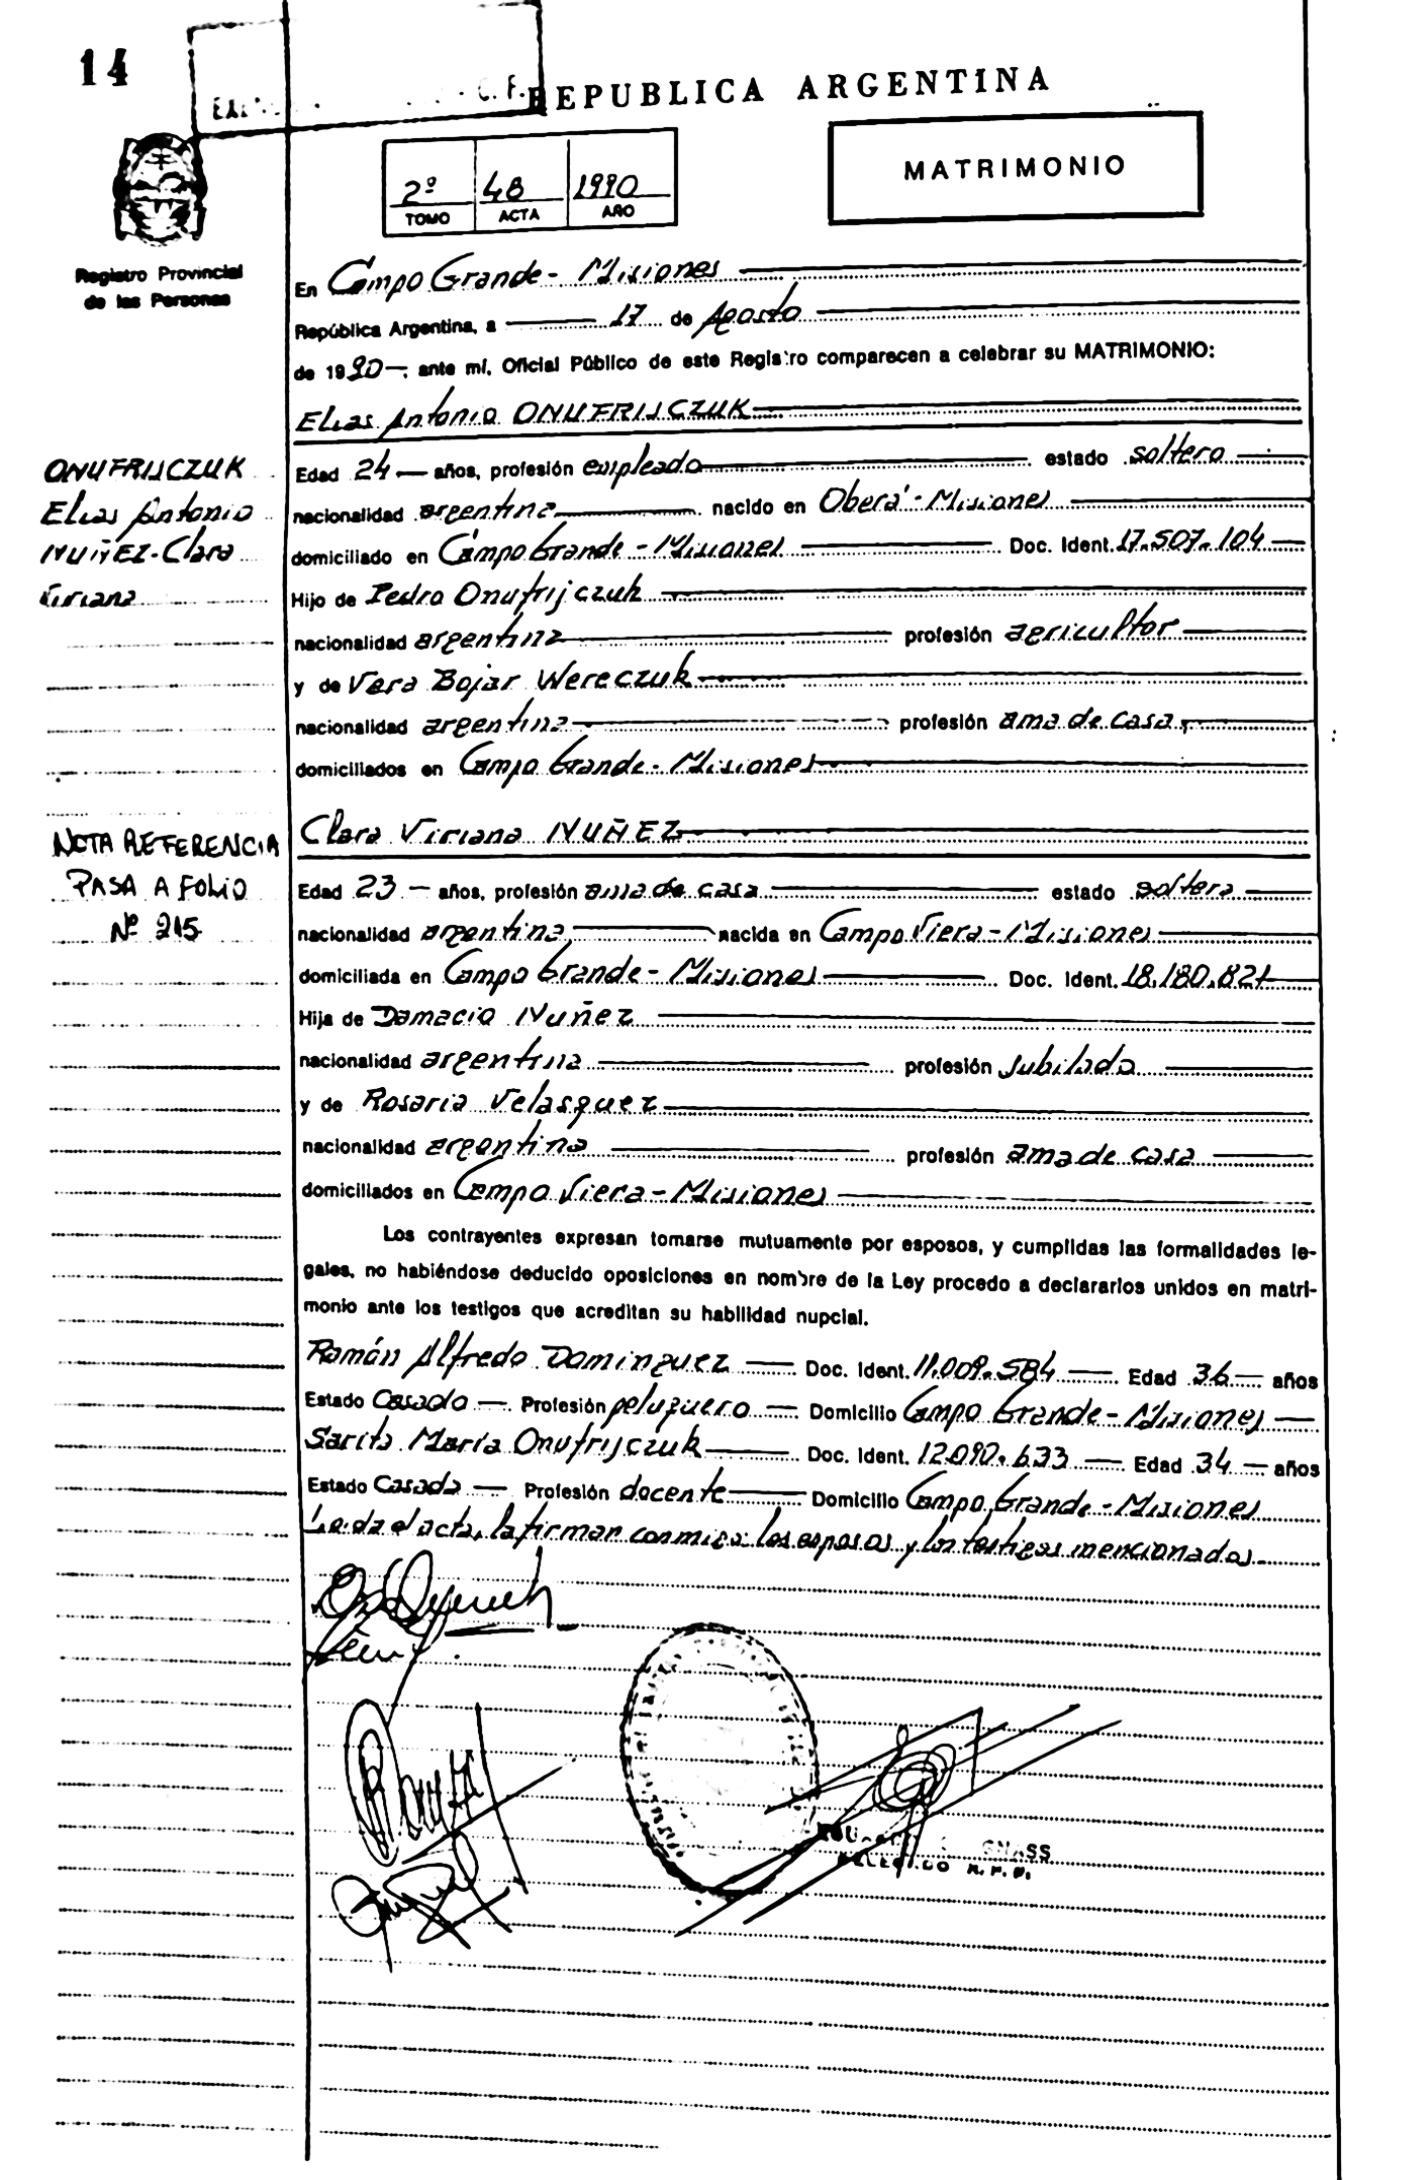 14
C. F.
REPUBLICA ARGENTINA
MATRIMONIO
2º 48 1990
TOMO ACTA AÑO
Registro Provincial
de las Personas
En Campo Grande - Misiones
República Argentina, a 17 de Agosto
de 1990 - ante mí, Oficial Público de este Registro comparecen a celebrar su MATRIMONIO:
Elias Antonio ONUFRIJCZUK
ONUFRIJCZUK
Elias Antonio
NUÑEZ - Clara
Viviana
Edad 24 años, profesión empleado estado soltero
nacionalidad argentina nacido en Oberá - Misiones
domiciliado en Campo Grande - Misiones Doc. Ident. 17.507.104
Hijo de Pedro Onufrijczuk
nacionalidad argentina profesión agricultor
y de Vera Bojar Wereczuk
nacionalidad argentina profesión ama de casa,
domiciliados en Campo Grande - Misiones
NOTA REFERENCIA
PASA A FOLIO
Nº 215
Clara Viviana NUÑEZ
Edad 23 - años, profesión ama de casa estado soltera
nacionalidad argentina nacida en Campo Viera - Misiones
domiciliada en Campo Grande - Misiones Doc. Ident. 18.180.821
Hija de Damacio Nuñez
nacionalidad argentina profesión Jubilado
y de Rosaria Velasquez
nacionalidad argentina profesión ama de casa
domiciliados en Campo Viera - Misiones
Los contrayentes expresan tomarse mutuamente por esposos, y cumplidas las formalidades le-
gales, no habiéndose deducido oposiciones en nombre de la Ley procedo a declararlos unidos en matri-
monio ante los testigos que acreditan su habilidad nupcial.
Ramón Alfredo Dominguez Doc. Ident. 11.009.584 Edad 36 años
Estado Casado Profesión peluquero Domicilio Campo Grande - Misiones
Sarita María Onufrijczuk Doc. Ident. 12.090.633 Edad 34 años
Estado Casada Profesión docente Domicilio Campo Grande - Misiones
Leida el acta, la firman conmigo los esposos y los testigos mencionados
GNASS